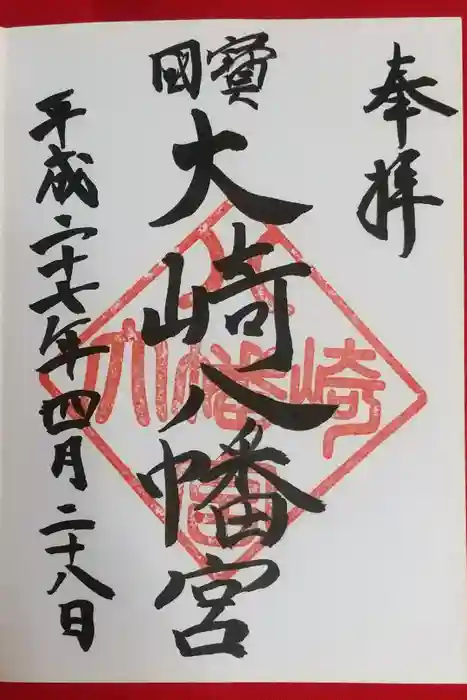 奉拝
國寳
大崎八幡宮
平成二十七年四月二十八日
大崎八幡宮